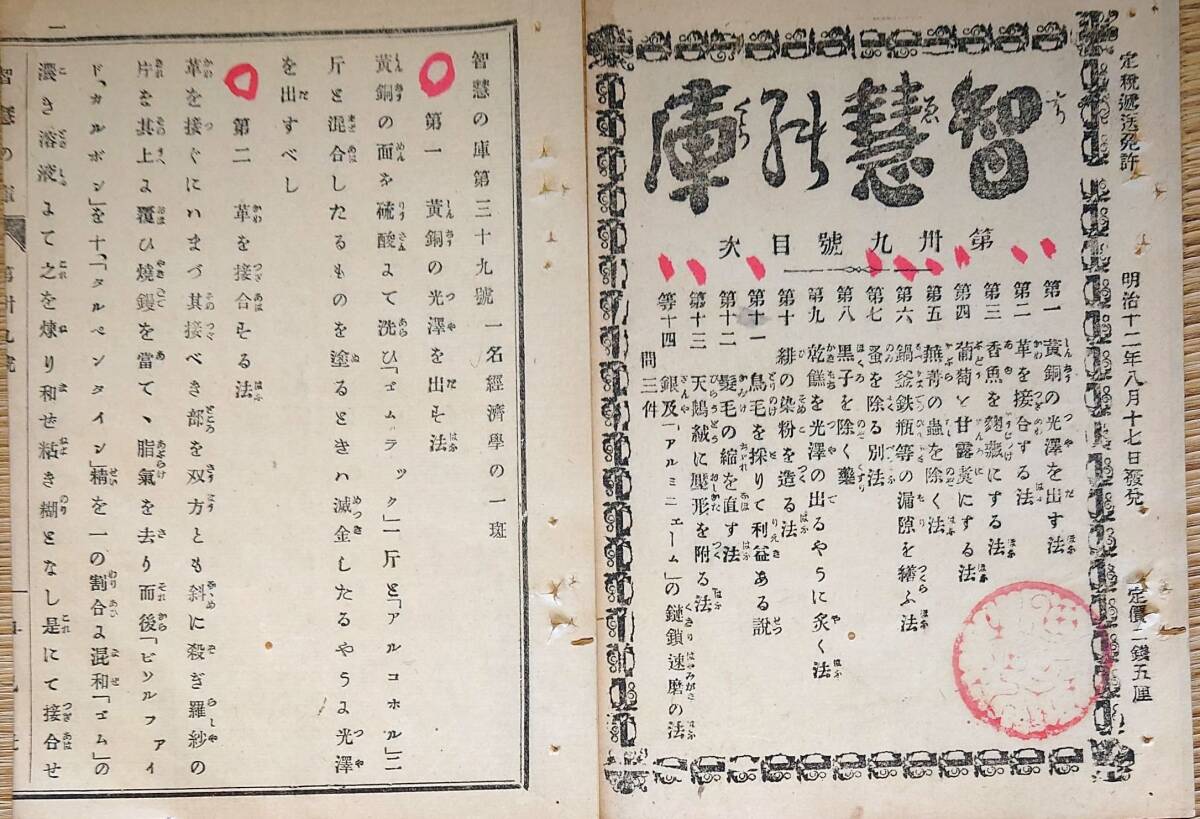 定税遞送免許
明治十二年八月十七日發兌
定價二錢五厘
智慧の庫
第卅九號目次
第一 黃銅の光澤を出す法
第二 革を接合する法
第三 香魚を麹藏にする法
第四 葡萄を甘露煑にする法
第五 蕪菁の蟲を除く法
第六 鍋釜鉄瓶等の漏隙を繕ふ法
第七 蚤を除る別法
第八 黒子を除く藥
第九 乾餻を光澤の出るやうに炙く法
第十 緋の染粉を造る法
第十一 鳥毛を採りて利益ある説
第十二 髮毛の縮を直す法
第十三 天鵞絨に壓形を附る法
第十四 銀及「アルミニエーム」の鏈鎖速磨の法
問三件
智慧の庫第三十九號 一名經濟學の一斑
第一 黃銅の光澤を出す法
黃銅の面を硫酸よて洗ひ「ゴムラック」一斤と「アルコホル」二
斤と混合したるものを塗るときハ滅金したるやうよ光澤
を出すべし
第二 革を接合する法
革を接ぐにハまづ其接べき部を双方とも斜に殺ぎ羅紗の
片を其上よ覆ひ燒鏝を當て、脂氣を去り而後「ビソルファイ
ド、カルボン」を十、「タルペンタイン」精を一の割合よ混和「ゴム」の
濃き溶液よて之を煉り和せ粘き糊となし是にて接合せ
一
智慧の庫 第卅九號